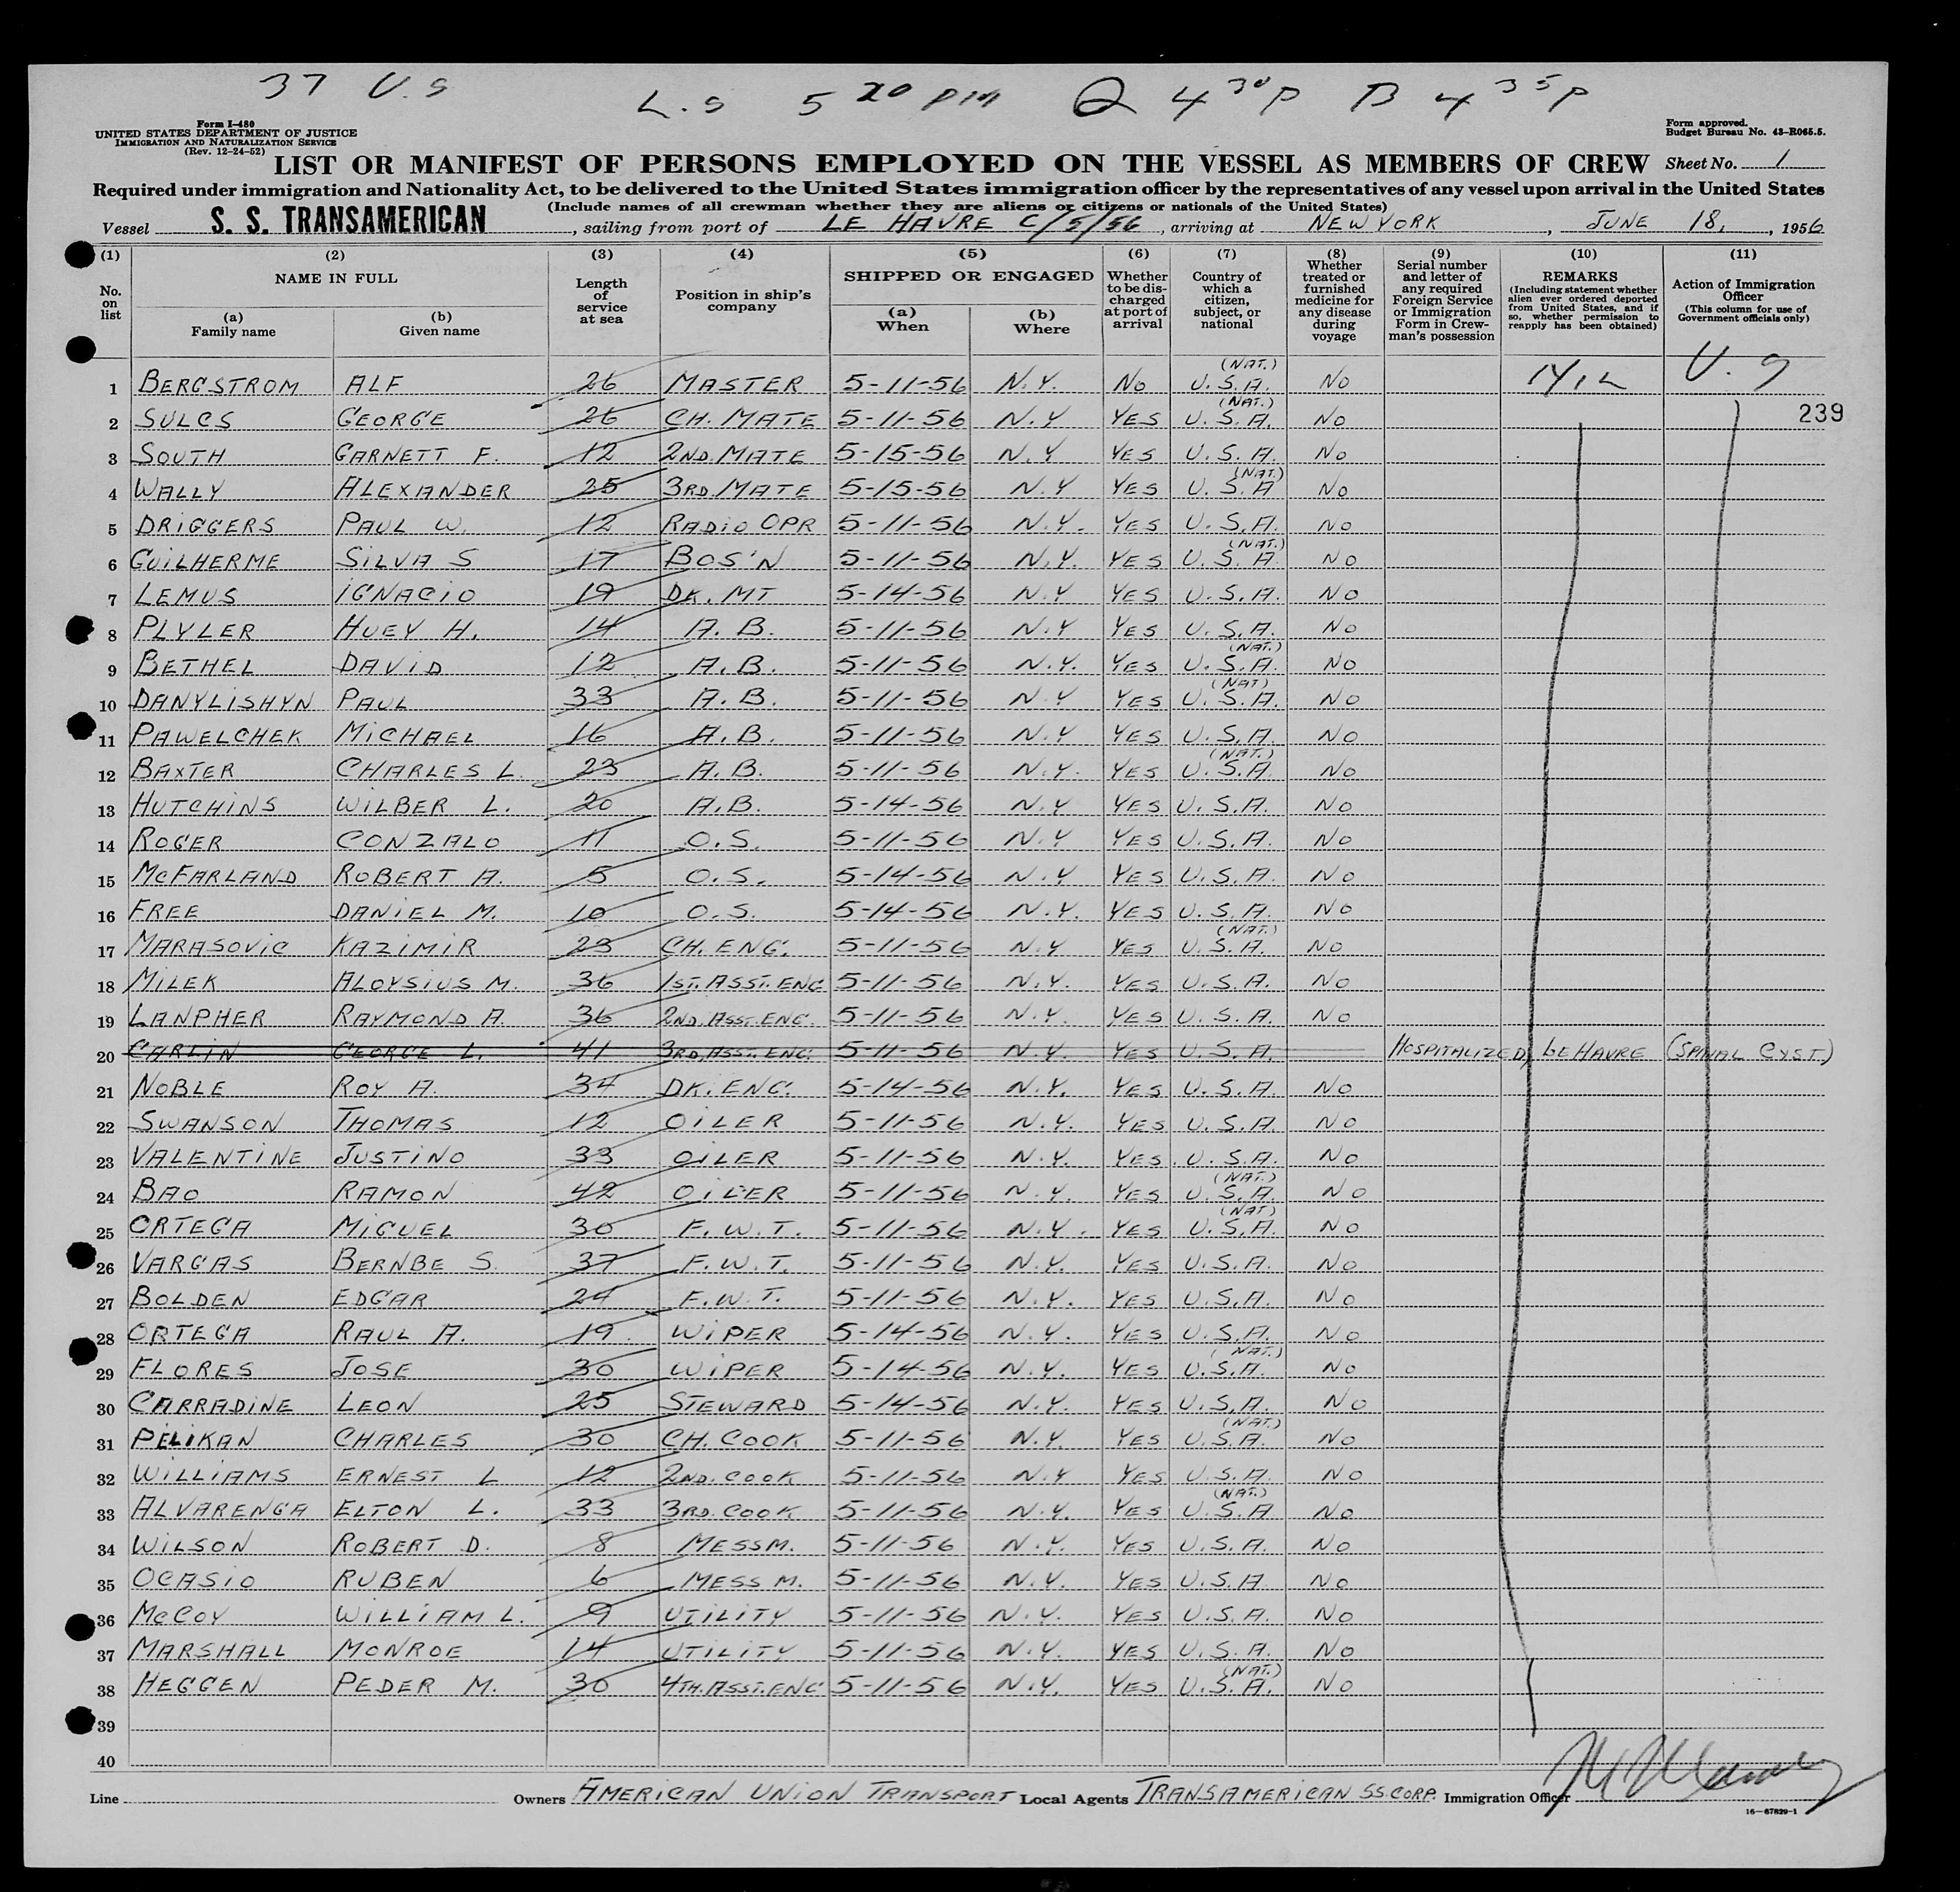 37 U.S
L.S 5 20 PM Q 4 30 P B 4 35 P
Form I-480
UNITED STATES DEPARTMENT OF JUSTICE
IMMIGRATION AND NATURALIZATION SERVICE
(Rev. 12-24-52)
Form approved.
Budget Bureau No. 43-R065.5.
LIST OR MANIFEST OF PERSONS EMPLOYED ON THE VESSEL AS MEMBERS OF CREW Sheet No. 1
Required under immigration and Nationality Act, to be delivered to the United States immigration officer by the representatives of any vessel upon arrival in the United States
(Include names of all crewman whether they are aliens or citizens or nationals of the United States)
Vessel S. S. TRANSAMERICAN, sailing from port of LE HAVRE 6/5/56, arriving at NEW YORK, JUNE 18, 1956
(1) (2) (3) (4) (5) (6) (7) (8) (9) (10) (11)
No. on list
NAME IN FULL
(a) Family name
(b) Given name
Length of service at sea
Position in ship's company
SHIPPED OR ENGAGED
(a) When
(b) Where
Whether to be discharged at port of arrival
Country of which a citizen, subject, or national
Whether treated or furnished medicine for any disease during voyage
Serial number and letter of any required Foreign Service or Immigration Form in Crewman's possession
REMARKS
(Including statement whether alien ever ordered deported from United States, and if so, whether permission to reapply has been obtained)
Action of Immigration Officer
(This column for use of Government officials only)
1 BERGSTROM ALF 26 MASTER 5-11-56 N.Y. NO (NAT.) U.S.A. NO U.S
2 SULCS GEORGE 26 CH. MATE 5-11-56 N.Y YES (NAT.) U.S.A. NO 239
3 SOUTH GARNETT F. 12 2ND. MATE 5-15-56 N.Y YES U.S.A. NO
4 WALLY ALEXANDER 25 3RD. MATE 5-15-56 N.Y YES (NAT.) U.S.A NO
5 DRIGGERS PAUL W. 12 RADIO OPR 5-11-56 N.Y. YES U.S.A. NO
6 GUILHERME SILVA S 17 BOS'N 5-11-56 N.Y. YES (NAT.) U.S.A. NO
7 LEMUS IGNACIO 19 DK. MT 5-14-56 N.Y YES U.S.A. NO
8 PLYLER HUEY H. 14 A.B. 5-11-56 N.Y YES U.S.A. NO
9 BETHEL DAVID 12 A.B. 5-11-56 N.Y. YES (NAT.) U.S.A. NO
10 DANYLISHYN PAUL 33 A.B. 5-11-56 N.Y YES (NAT) U.S.A. NO
11 PAWELCHEK MICHAEL 16 A.B. 5-11-56 N.Y YES U.S.A. NO
12 BAXTER CHARLES L. 23 A.B. 5-11-56 N.Y. YES (NAT.) U.S.A. NO
13 HUTCHINS WILBER L. 20 A.B. 5-14-56 N.Y YES U.S.A. NO
14 ROGER GONZALO 11 O.S. 5-11-56 N.Y YES U.S.A. NO
15 McFARLAND ROBERT A. 5 O.S. 5-14-56 N.Y YES U.S.A. NO
16 FREE DANIEL M. 10 O.S. 5-14-56 N.Y. YES U.S.A. NO
17 MARASOVIC KAZIMIR 23 CH. ENG. 5-11-56 N.Y YES (NAT.) U.S.A. NO
18 MILEK ALOYSIUS M. 36 1ST. ASST. ENG 5-11-56 N.Y. YES U.S.A. NO
19 LANPHER RAYMOND A. 36 2ND. ASST. ENG. 5-11-56 N.Y. YES U.S.A. NO
20 CARLIN GEORGE L. 41 3RD. ASST. ENG. 5-11-56 N.Y. YES U.S.A. HOSPITALIZED, LE HAVRE (SPINAL CYST.)
21 NOBLE ROY A. 34 DK. ENG. 5-14-56 N.Y. YES U.S.A. NO
22 SWANSON THOMAS 12 OILER 5-11-56 N.Y. YES U.S.A. NO
23 VALENTINE JUSTINO 33 OILER 5-11-56 N.Y. YES U.S.A. NO
24 BAO RAMON 42 OILER 5-11-56 N.Y. YES (NAT.) U.S.A NO
25 ORTEGA MIGUEL 30 F.W.T. 5-11-56 N.Y. YES (NAT) U.S.A. NO
26 VARGAS BERNBE S. 37 F.W.T. 5-11-56 N.Y. YES U.S.A. NO
27 BOLDEN EDGAR 24 F.W.T. 5-11-56 N.Y. YES U.S.A. NO
28 ORTEGA RAUL A. 19 WIPER 5-14-56 N.Y. YES U.S.A. NO
29 FLORES JOSE 30 WIPER 5-14-56 N.Y. YES (NAT.) U.S.A. NO
30 CARRADINE LEON 25 STEWARD 5-14-56 N.Y. YES U.S.A. NO
31 PELIKAN CHARLES 30 CH. COOK 5-11-56 N.Y. YES (NAT.) U.S.A. NO
32 WILLIAMS ERNEST L 12 2ND. COOK 5-11-56 N.Y YES U.S.A. NO
33 ALVARENGA ELTON L. 33 3RD. COOK 5-11-56 N.Y. YES (NAT.) U.S.A NO
34 WILSON ROBERT D. 8 MESSM. 5-11-56 N.Y. YES U.S.A. NO
35 OCASIO RUBEN 6 MESS M. 5-11-56 N.Y. YES U.S.A. NO
36 McCOY WILLIAM L. 9 UTILITY 5-11-56 N.Y. YES U.S.A. NO
37 MARSHALL MONROE 14 UTILITY 5-11-56 N.Y. YES U.S.A. NO
38 HEGGEN PEDER M. 30 4TH. ASST. ENG 5-11-56 N.Y. YES (NAT.) U.S.A. NO
39
40
Line Owners AMERICAN UNION TRANSPORT Local Agents TRANSAMERICAN SS. CORP. Immigration Officer
16—67829-1